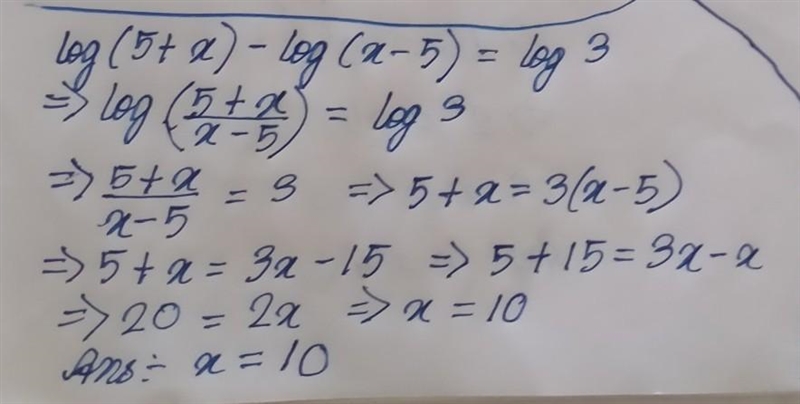 log(5+x)-log(x-5) = log 3
=> log(5+x/x-5) = log 3
=> 5+x/x-5 = 3 => 5+x=3(x-5)
=> 5+x = 3x-15 => 5+15=3x-x
=> 20 = 2x => x = 10
Ans÷ x = 10